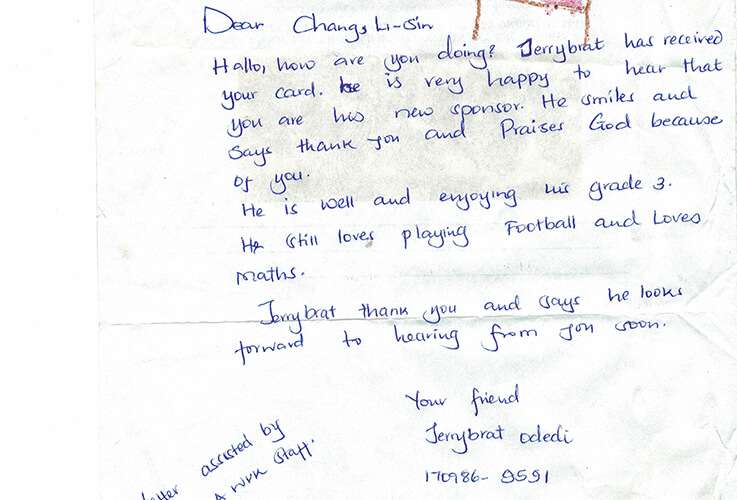 Dear Changs Li-Sin
Hallo, how are you doing? Jerrybrat has received
your card. he is very happy to hear that
you are his new sponsor. He smiles and
says thank you and Praises God because
of you.
He is well and enjoying his grade 3.
He still loves playing Football and Loves
maths.
Jerrybrat thank you and says he looks
forward to hearing from you soon.
Your friend
Jerrybrat odedi
170986-9591
letter assisted by
work staff.